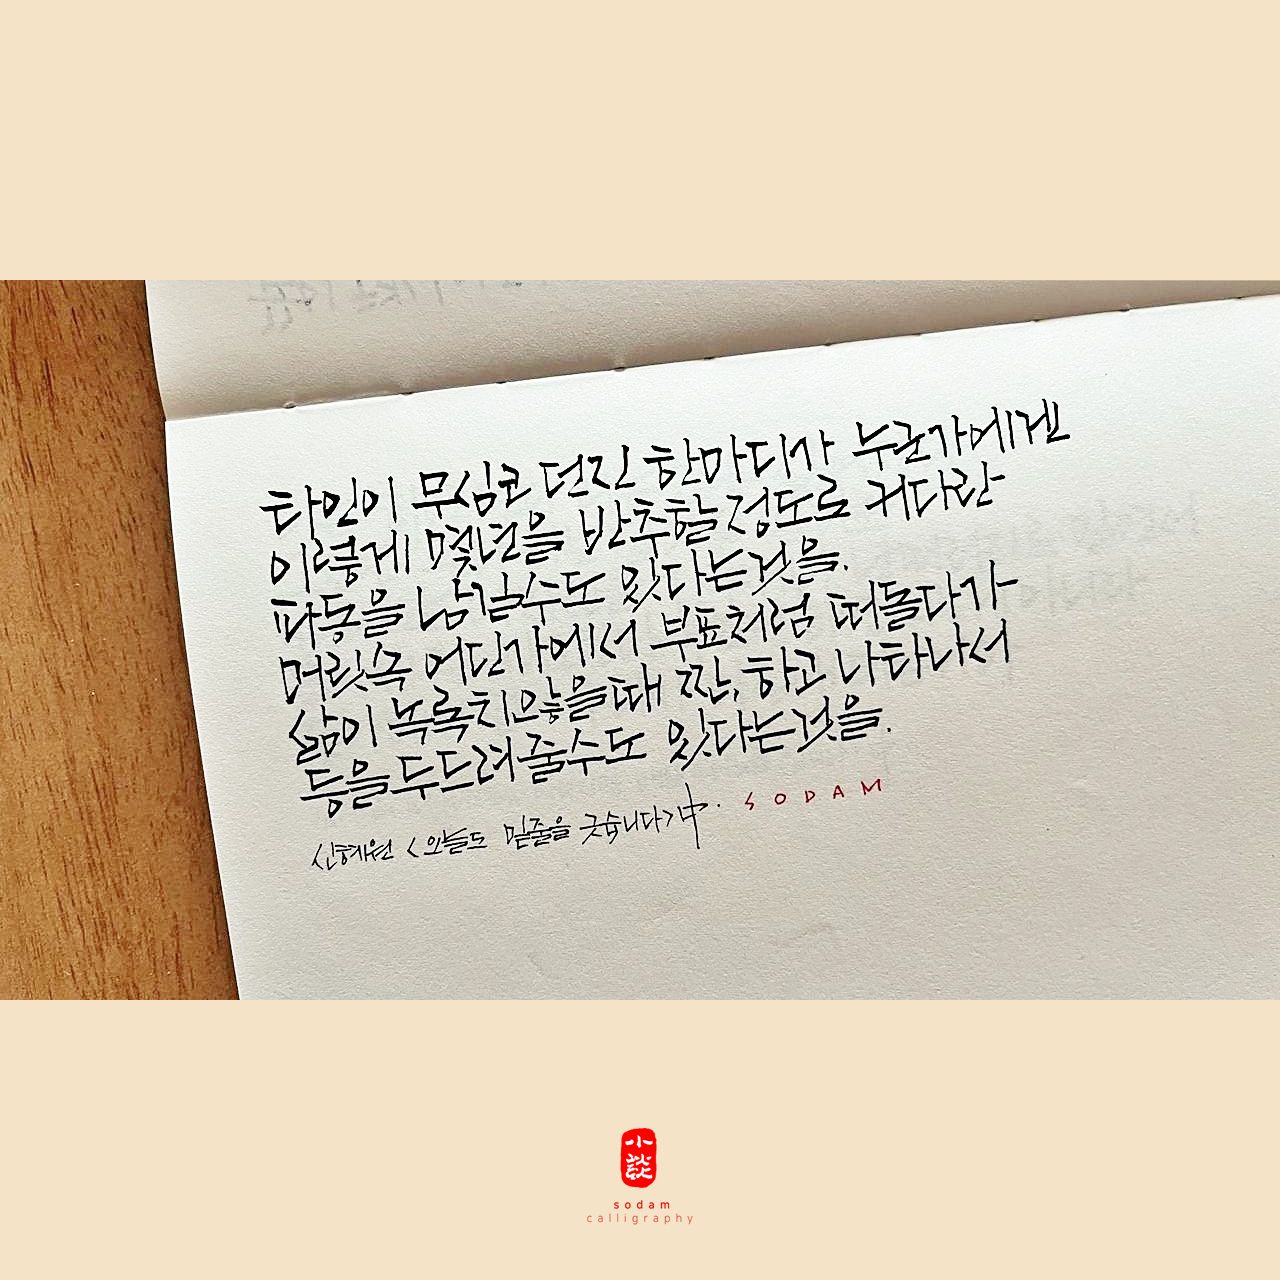 타인이 무심코 던진 한마디가 누군가에겐
이렇게 몇년을 반추할 정도로 커다란
파동을 남길수도 있다는것을.
머릿속 어딘가에서 부표처럼 떠돌다가
삶이 녹록치않을때 짠, 하고 나타나서
등을 두드려줄수도 있다는것을.
신혜원 <오늘도 밑줄을 긋습니다>中. SODAM
小談
sodam
calligraphy